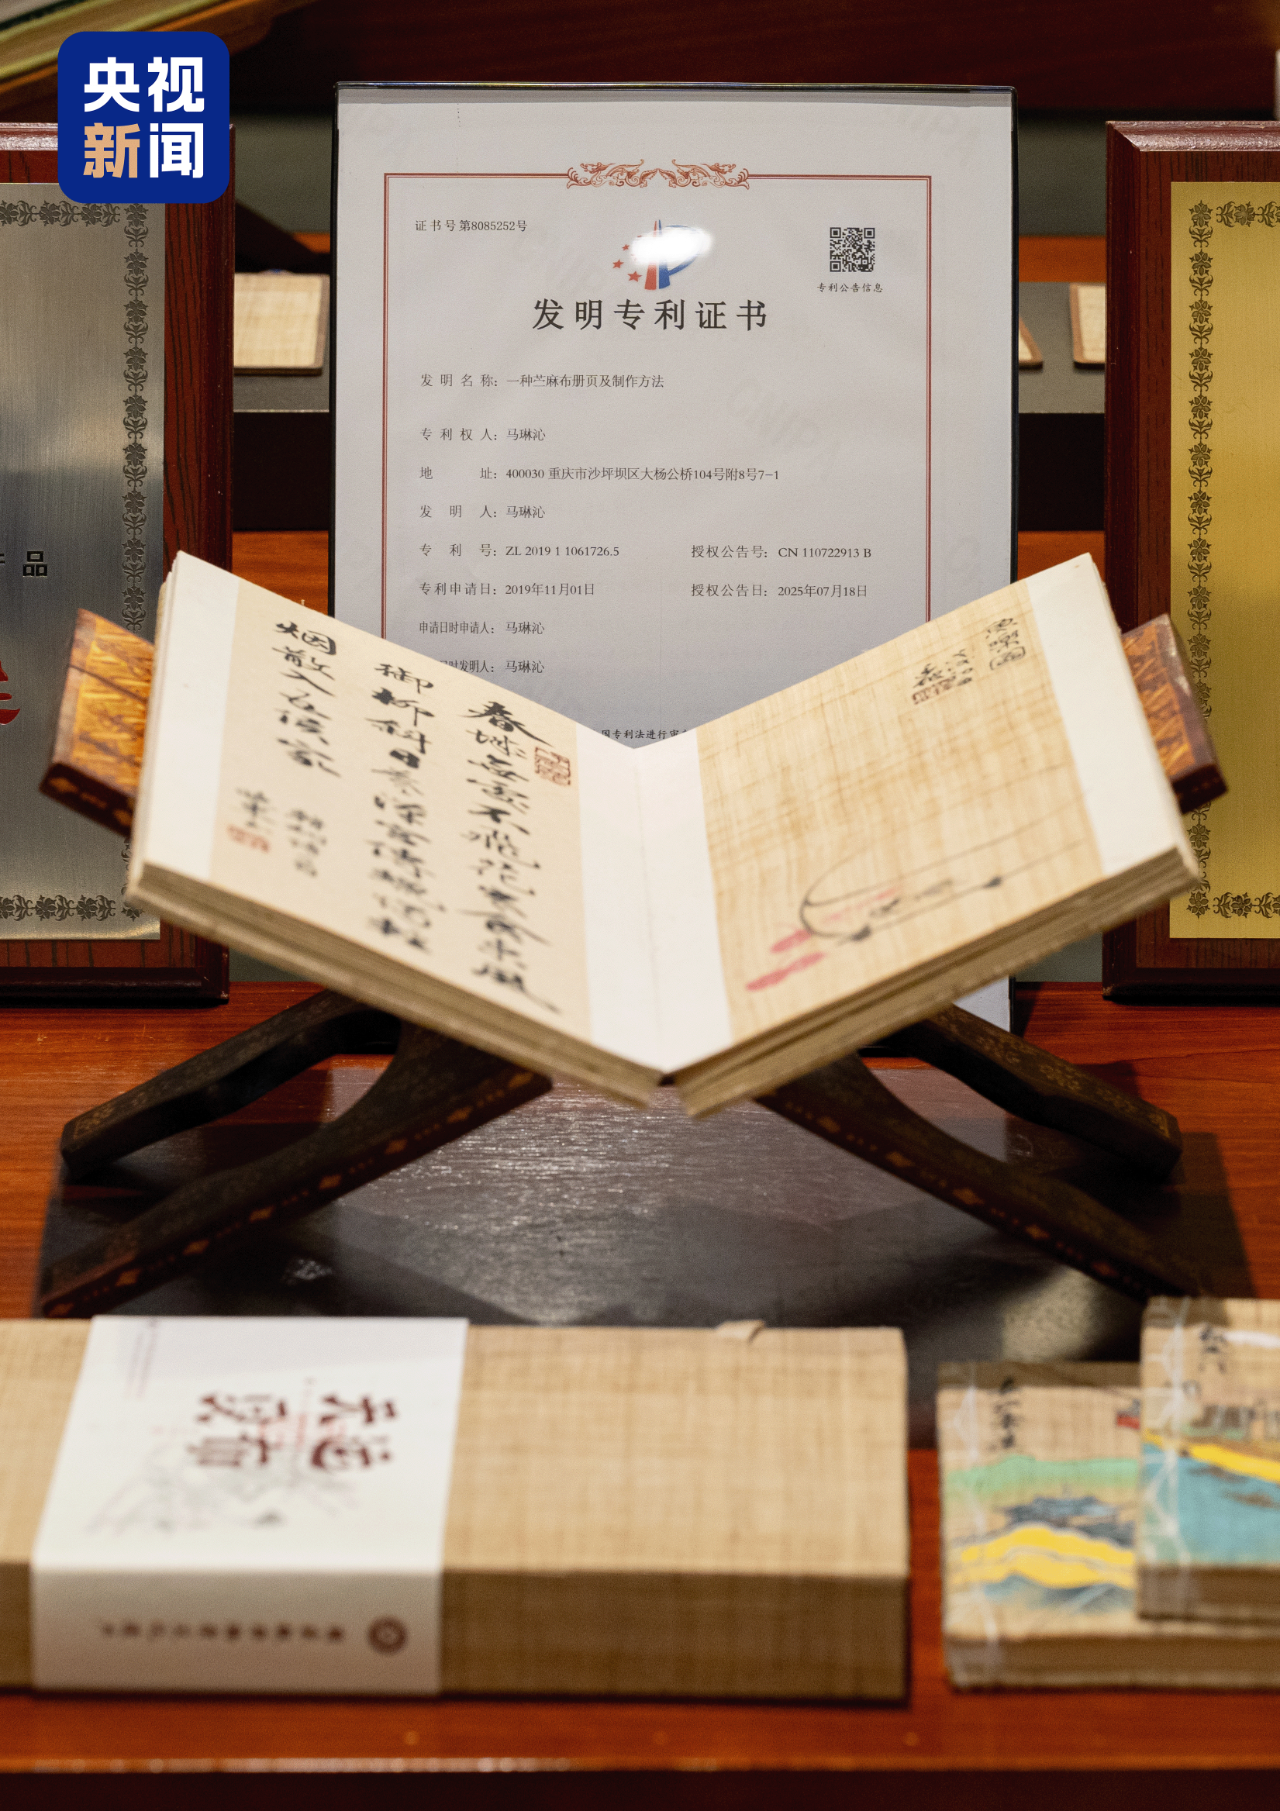 央视
新闻
证书号第8085252号
专利公告信息
发明专利证书
发明名称：一种苎麻布册页及制作方法
专利权人：马琳沁
地址：400030 重庆市沙坪坝区大杨公桥104号附8号7-1
发明人：马琳沁
专利号：ZL 2019 1 1061726.5
授权公告号：CN 110722913 B
专利申请日：2019年11月01日
授权公告日：2025年07月18日
申请日时申请人：马琳沁
时发明人：马琳沁
国专利法进行审
品
春城无处不飞花寒食东风
御柳斜日暮汉宫传蜡烛轻
烟散入五侯家